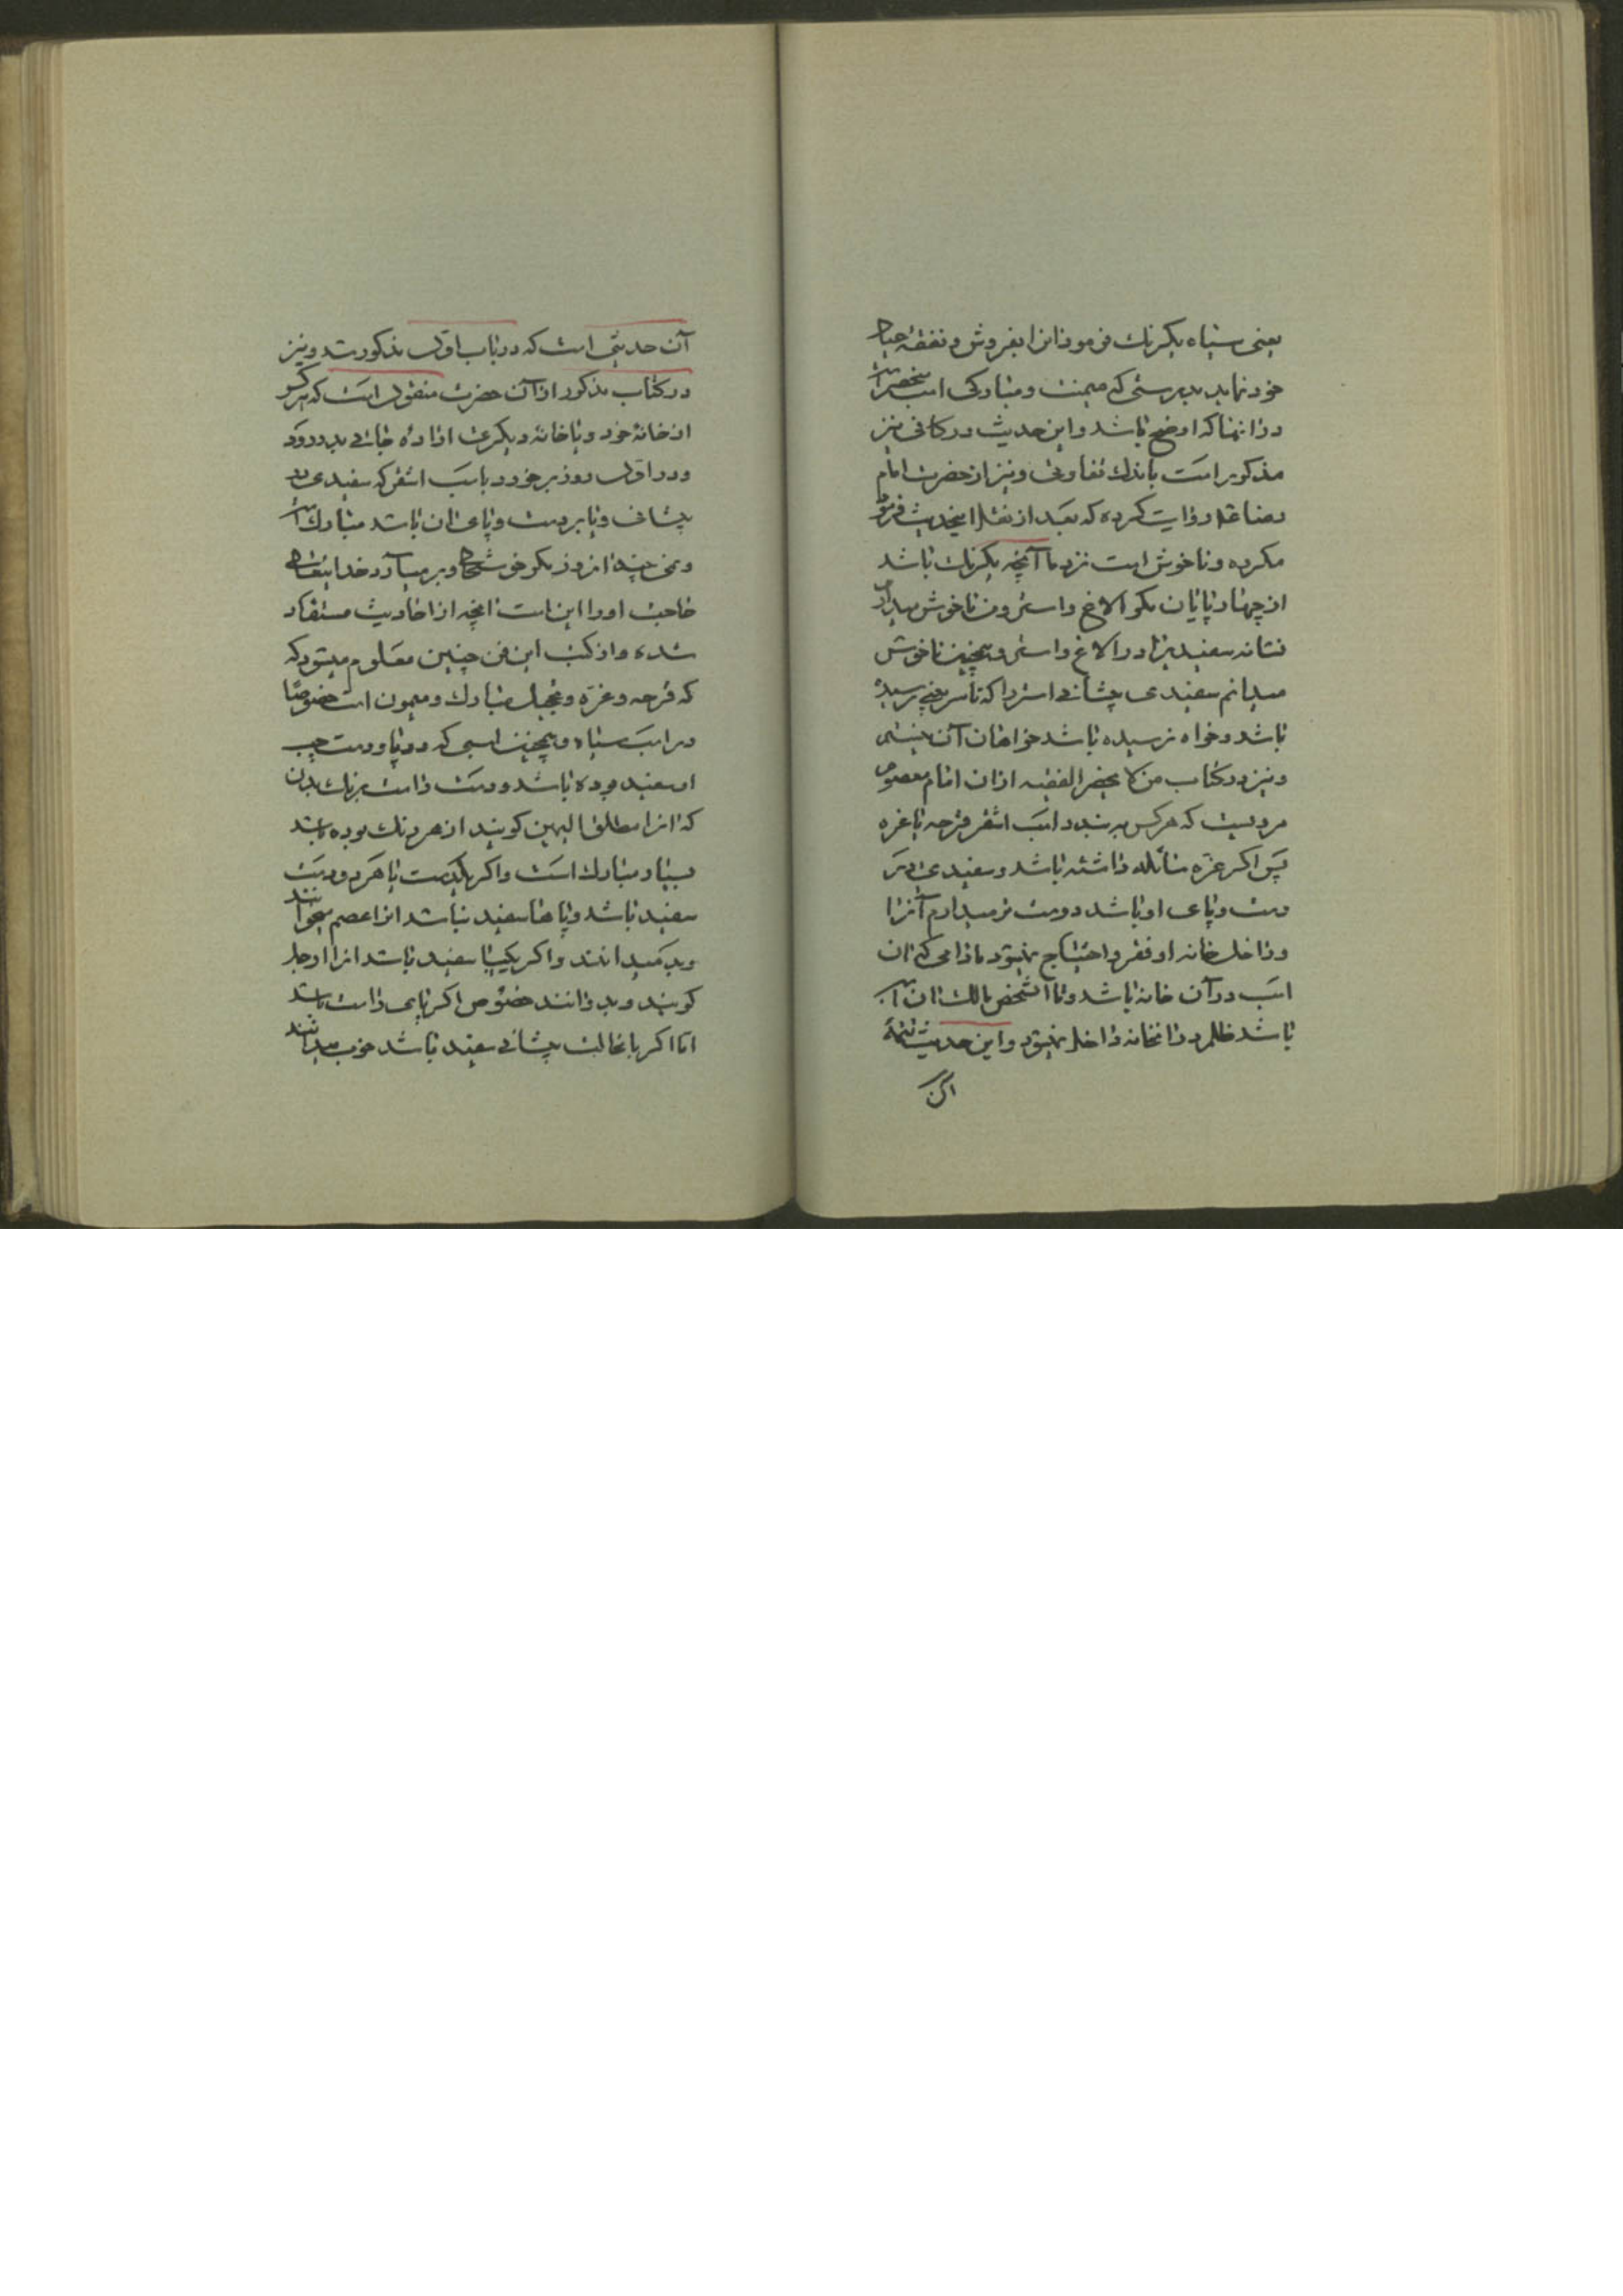 یعنی سیاه یکرنك فرمود انرا بفروش و نفقهٔ عیال
خود نما بدرستی که میمنت و مبارکی اسب منحصر است
در انها که اوضح باشد و این حدیث در کافی نیز
مذکور است باندك تفاوتی و نیز از حضرت امام
رضا روایت کرده که بعد از نقل اینحدیث فرمود
مکروه و ناخوش است نزد ما آنچه یکرنك باشد
از چهارپایان مکر الاغ و استر و من ناخوش میدارم
نشانه سفید را در الاغ و استر و همچنین ناخوش
میدانم سفیدی پیشانی استر را که تا سر بینی رسیده
باشد و خواه نرسیده باشد خواهان آن نیستم
و نیز در کتاب من لا یحضر الفقیه از ان امام معصوم
مرویست که هر کس به بندد اسب اشقر قرحه یا غره
پس اکر غره سائله داشته باشد و سفیدی در
دست و پای او باشد دوست تر میدارم آنرا
و داخل خانه او فقر و احتیاج نمیشود مادامی که ان
اسب در آن خانه باشد و تا آنشخص مالك ان اسب
باشد ظلم در انخانه داخل نمیشود و این حدیث تتمهٔ
آن
آن حدیثی است که در باب اول مذکور شد و نیز
در کتاب مذکور از آن حضرت منقول است که هر کس
از خانهٔ خود و یا خانهٔ دیکری ارادهٔ جائی بدر رود
و در اول روز بر خورد باسب اشقر که سفیدی در
پیشانی و یا بر دست و پای ان باشد مبارك است
و نمی بیند انروز مکر خوشحالی و بر میآورد خدایتعالی
حاجت او را این است انچه از احادیث مستفاد
شده و از کتب این فن چنین معلوم میشود که
که قرحه و غره و تحجیل مبارك و میمون است خصوصا
در اسب سیاه و همچنین اسبی که دو پا و دست چپ
او سفید بوده باشد و دست راست برنك بدن
که انرا مطلق الیمین کویند از هر رنك بوده باشد
بسیار مبارك است و اکر یکدست یا هر دو دست
سفید باشد و پاها سفید نباشد انرا اعصم میخوانند
و بد میدانند و اکر یکپا سفید باشد انرا ارجل
کویند و بد دانند خصوص اکر پای راست باشد
اما اکر با انحالت پیشانی سفید باشد خوب میدانند